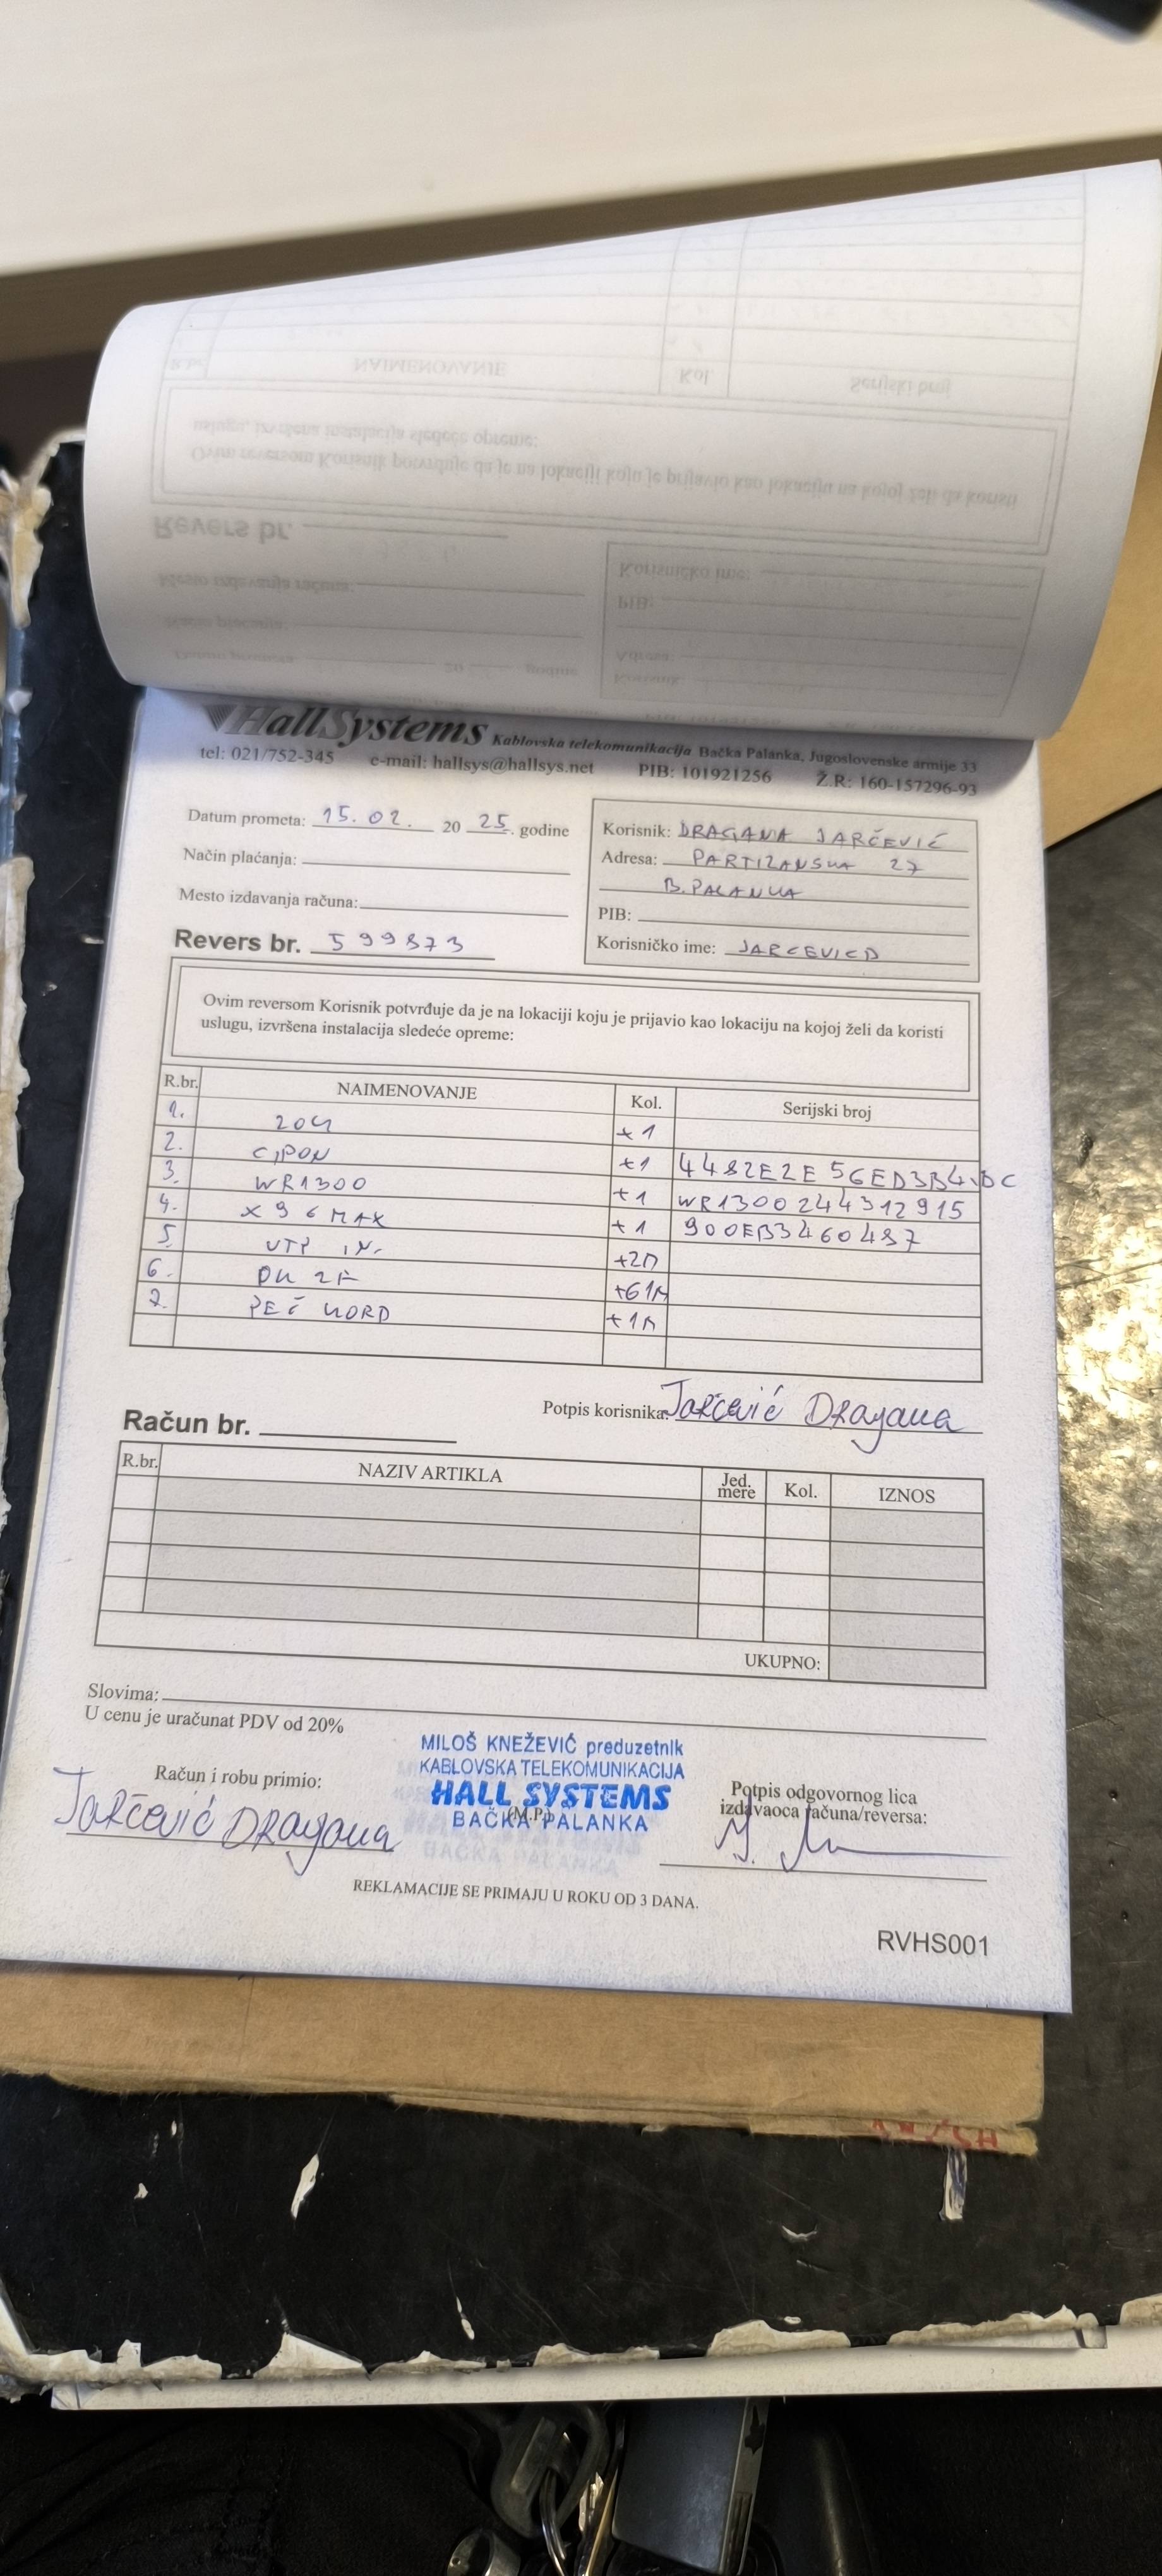 HallSystems Kablovska telekomunikacija Bačka Palanka, Jugoslovenske armije 33
tel: 021/752-345 e-mail: hallsys@hallsys.net PIB: 101921256 Ž.R: 160-157296-93
Datum prometa: 15.02. 20 25. godine
Način plaćanja:
Mesto izdavanja računa:
Revers br. 599873
Korisnik: DRAGANA JARČEVIĆ
Adresa: PARTIZANSKA 27
B.PALANKA
PIB:
Korisničko ime: JARCEVICD
Ovim reversom Korisnik potvrđuje da je na lokaciji koju je prijavio kao lokaciju na kojoj želi da koristi
uslugu, izvršena instalacija sledeće opreme:
R.br. NAIMENOVANJE Kol. Serijski broj
1. ZOK +1
2. CIPON +1 4482E2E56ED3B4DC
3. WR1300 +1 WR1300244312915
4. X96MAX +1 900EB3460487
5. UTP IN. +2M
6. OK 2F +61M
7. PEČ KORD +1M
Potpis korisnika: Jarčević Dragana
Račun br.
R.br. NAZIV ARTIKLA Jed. mere Kol. IZNOS
UKUPNO:
Slovima:
U cenu je uračunat PDV od 20%
Račun i robu primio:
Jarčević Dragana
MILOŠ KNEŽEVIĆ preduzetnik
KABLOVSKA TELEKOMUNIKACIJA
HALL SYSTEMS
(M.P.)
BAČKA PALANKA
Potpis odgovornog lica
izdavaoca računa/reversa:
REKLAMACIJE SE PRIMAJU U ROKU OD 3 DANA.
RVHS001